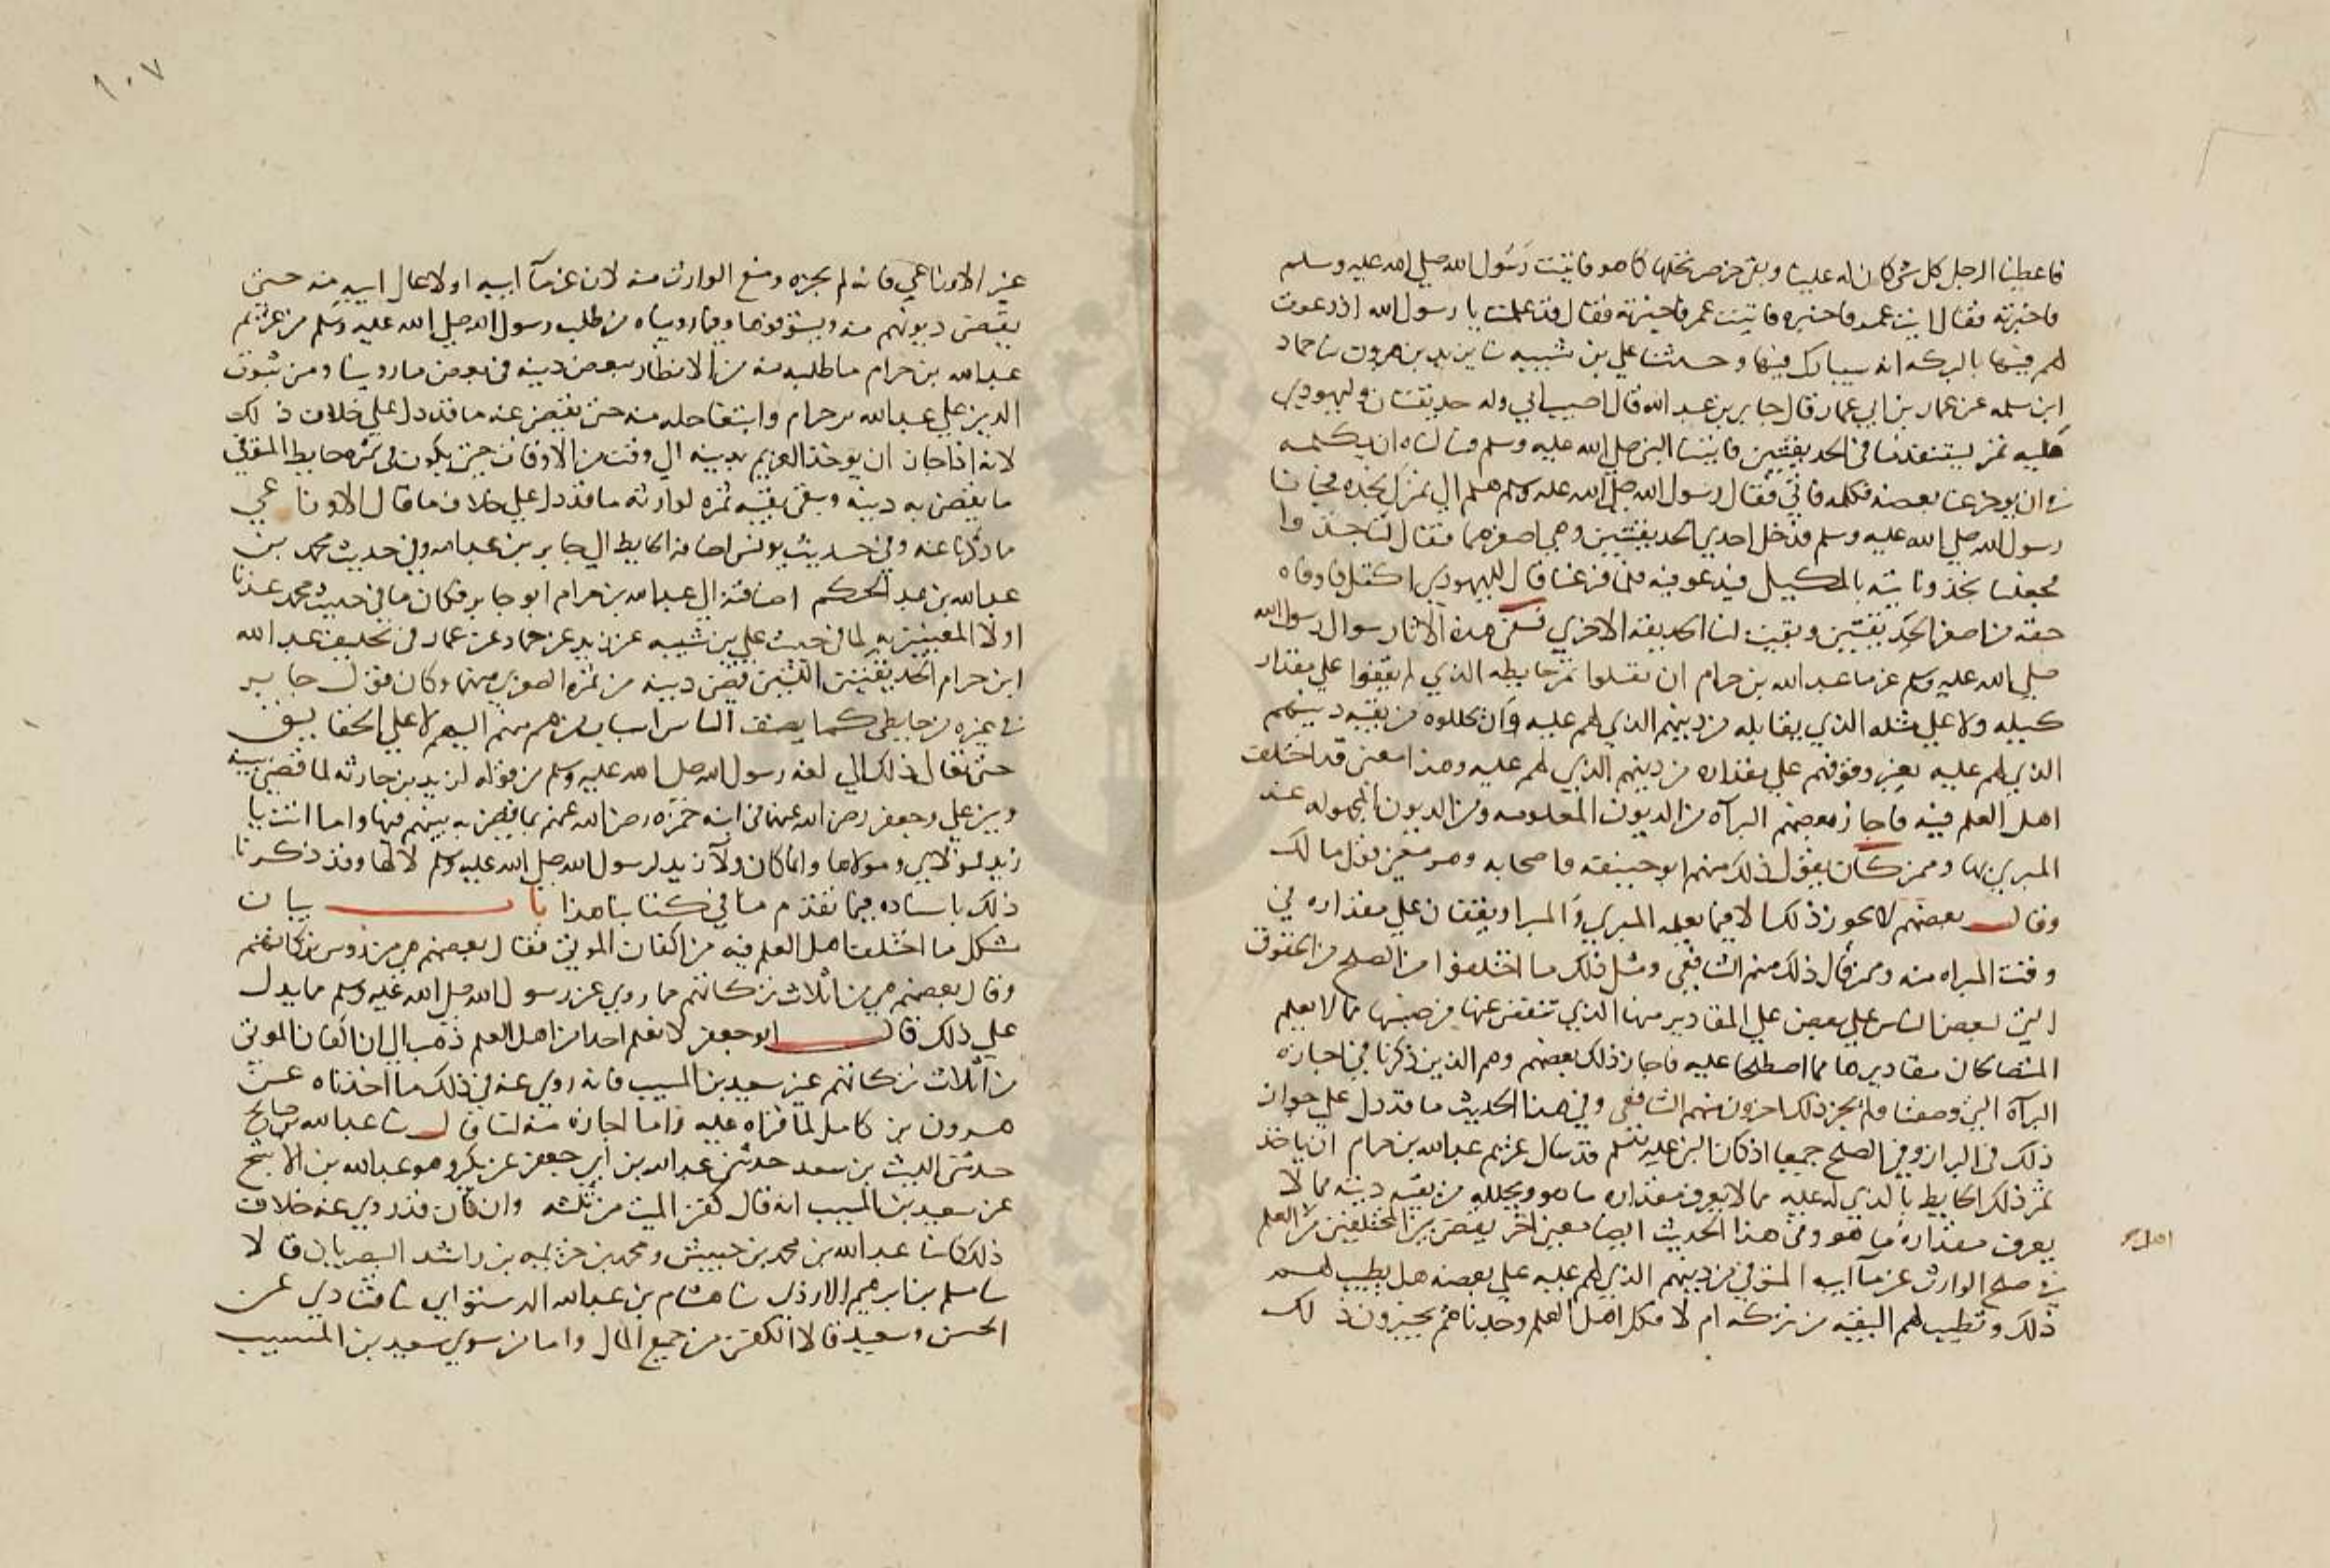 فاعطينا الرجل كل شي كان له علينا وبقي خرص نخلها كما هو فاتيت رسول الله صلي الله عليه وسلم
فاخبرته فقال ايت عمر فاخبره فاتيت عمر فاخبرته فقال قد علمت يا رسول الله اذ دعوت
لهم فيها بالبركه انه سيبارك فيها وحدثنا علي بن شيبه نا يزيد بن هرون نا حماد
ابن سلمه عن عمار بن ابي عمار قال جابر بن عبد الله قال اصيب ابي وله حديقتان وليهودي
عليه تمر يستنفذ ما في الحديقتين فاتينا النبي صلي الله عليه وسلم فسالناه ان يكلمه
في ان يوخر عنا بعضه فكلمه فابي فقال رسول الله صلي الله عليه وسلم هلم الي تمرك تجده فجانا
رسول الله صلي الله عليه وسلم فدخل احدي الحديقتين وهي اصغرهما فقال لنا جذوا
فجعلنا نجذ وناتيه بالمكيل فيدعو فيه فلما فرغنا قال لليهودي اكتل فاوفاه
حقه من اصغر الحديقتين وبقيت لنا الحديقه الاخري ففي هذه الاثار سوال رسول الله
صلي الله عليه وسلم غرما عبد الله بن حرام ان يقبلوا ثمر حايطه الذي لم يقفوا علي مقدار
كيله ولا علي مثله الذي يقابله من دينهم الذي لهم عليه وان يحللوه من بقيه دينهم
الذي لهم عليه بغير وقوفهم علي مقداره من دينهم الذي لهم عليه وهذا معني قد اختلف
اهل العلم فيه فاجاز بعضهم البرآه من الديون المعلومه ومن الديون المجهوله عند
المبري بها وممن كان يقول ذلك منهم ابو حنيفه واصحابه وهو معني قول مالك
وقال بعضهم لا يجوز ذلك الا فيما يعلمه المبري والمبرا ويقفان علي مقداره في
وقت المبراه منه وممن قال ذلك منهم الشافعي ومثل ذلك ما اختلفوا من الصلح من الحقوق
التي لبعض الناس علي بعض علي المقادير منها الذي تنقص عنها من جنسها مما لا يعلم
المتصالحان مقاديرها مما اصطلحا عليه فاجاز ذلك بعضهم وهم الذين ذكرنا في اجازه
البرآه التي وصفنا ولم يجز ذلك اخرون منهم الشافعي وفي هذا الحديث ما قد دل علي جواز
ذلك في البراه وفي الصلح جميعا اذ كان النبي عليه السلم قد سال غريم عبد الله بن حرام ان ياخذ
ثمر ذلك الحايط بالذي له عليه مما لا يعرف مقداره ما هو ويحلله من بقيه دينه مما لا
يعرف مقداره ما هو وفي هذا الحديث ايضا معني اخر يقضي بين المختلفين من العلم
اهل
في صلح الوارث غرمآ ابيه المتوفي من دينهم الذي لهم عليه علي بعضه هل يطيب لهم
ذلك وتطيب لهم البقيه من تركته ام لا فكل اهل العلم وجدناهم يجيزون ذلك
١٠٧
غير الاوزاعي فانه لم يجزه ومنع الوارث منه لان غرمآ ابيه اولا بمال ابيه منه حتي
يقضي ديونهم منه ويستوفوها وفيما رويناه من طلب رسول الله صلي الله عليه وسلم من غريم
عبد الله بن حرام ما طلبه منه من الانظار ببعض دينه في بعض ما روينا ومن ثبوت
الدين علي عبد الله بن حرام وانتفا حله منه حتي يقبض عنه ما قد دل علي خلاف ذلك
لانه اذا جاز ان يوخذ الغريم بدينه الي وقت من الاوقات حتي يكون في ثمره حايط المتوفي
ما يقضي به دينه ويبقي بقيه ثمره لوارثه ما قد دل علي خلاف ما قال الاوزاعي
ما ذكرنا عنه وفي حديث يونس اضافه الحايط الي جابر بن عبد الله وفي حديث محمد بن
عبد الله بن عبد الحكم اضافته الي عبد الله بن حرام ابو جابر فكان ما في حديث محمد عندنا
اولا المعنيين به لما في حديث علي بن شيبه عن يزيد عن حماد عن عمار في تخليف عبد الله
ابن حرام الحديقتين اللتين قضي دينه من ثمره الصغري منهما وكان قول جابر
في غيره من حايطي كما يضيف الناس اسباب من هم منهم اليهم لا علي الحقايق
حتي يقال ذلك الي لغه رسول الله صلي الله عليه وسلم من قوله لزيد بن حارثه لما قضي بينه
وبين علي وجعفر رضي الله عنهما في ابنه حمزه رضي الله عنهم بما قضي به بينهم فيها واما انت يا
زيد فمولاي ومولاها وانما كان ولآ زيد لرسول الله صلي الله عليه وسلم لا لها وقد ذكرنا
ذلك باسناده فيما تقدم منا في كتابنا هذا باب بيان
مشكل ما اختلف اهل العلم فيه من اكفان الموتي فقال بعضهم هي من روس تركاتهم
وقال بعضهم هي من اثلاث تركاتهم مما روي عن رسول الله صلي الله عليه وسلم مما يدل
علي ذلك قال ابو جعفر لا نعلم احدا من اهل العلم ذهب الي ان اكفان الموتي
من اثلاث تركاتهم غير سعيد بن المسيب فانه روي عنه في ذلك ما اخذناه عن
هرون بن كامل لما قراه عليه واما اجازه منه لنا قال نا عبد الله بن صالح
حدثني الليث بن سعد حدثني عبيد الله بن ابي جعفر عن بكير وهو عبد الله بن الاشج
عن سعيد بن المسيب انه قال كفن الميت من ثلثه وان كان قد روي عنه خلاف
ذلك كما نا عبد الله بن محمد بن حبيش ومحمد بن خزيمه بن راشد البصريان قالا
نا مسلم بن ابرهيم الازدي نا هشام بن عبد الله الدستوايي نا قتادي عن
الحسن وسعيد قالا الكفن من جميع المال واما من سوي سعيد بن المسيب